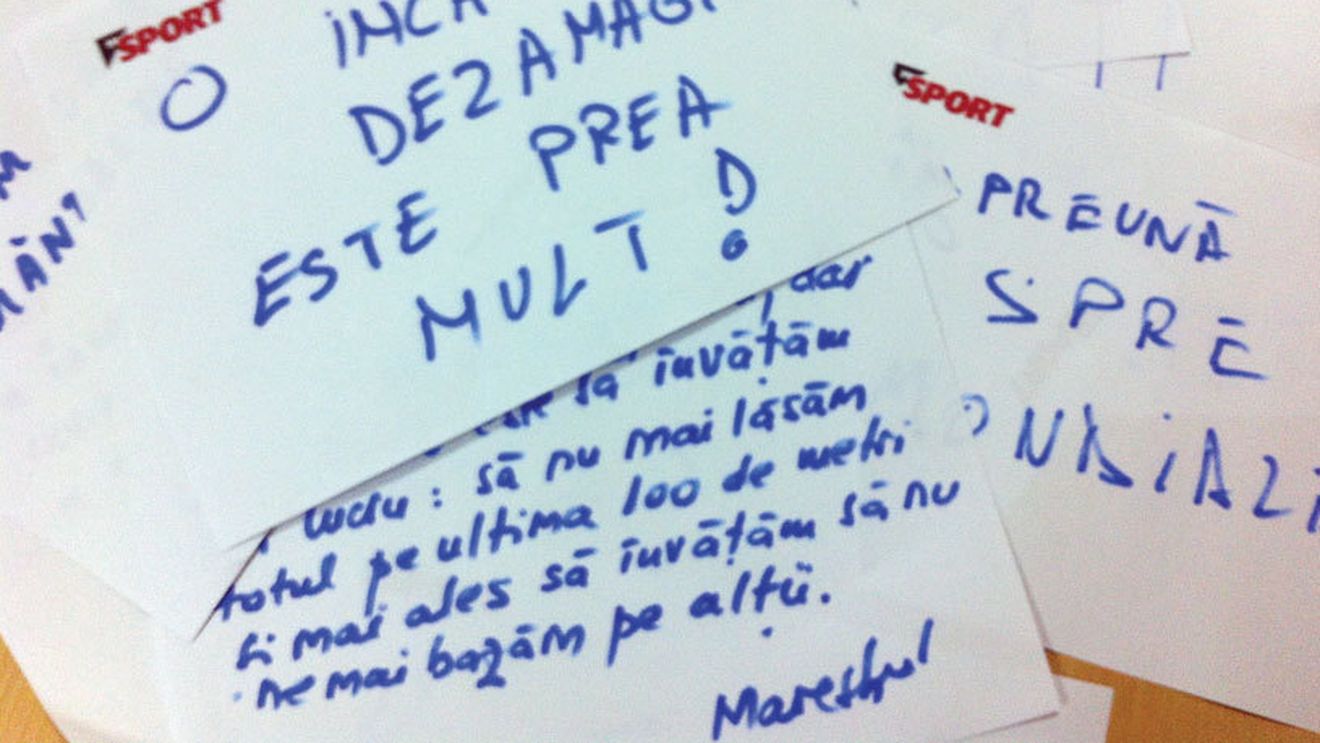 SPORT
O
DEZAMAGI
ESTE PREA
MULT!
dar
să învățăm
lucru: să nu mai lăsăm
totul pe ultima 100 de metri
și mai ales să învățăm să nu
ne mai bazăm pe alții.
Maestrul
SPORT
PREUNĂ
SPRE